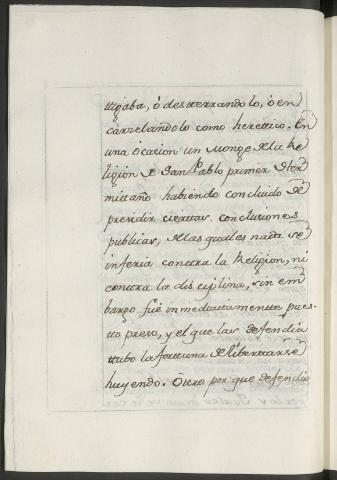 tigaba, ó desterrandolo, ó en
carzelandolo como herettico. En
una ócasion un Monge de la Re
ligion de San Pablo primer Her
mittaño habiendo concluido de
presidir ciertas conclusiones
publicas, de las quales nada se
inferia contra la Religion, ni
contra la disciplina, sin em
bargo fué inmediatamente pues-
tto preso, y el que las defendia
ttubo la forttuna de liberttarse
huyendo. Ottro por que defendio